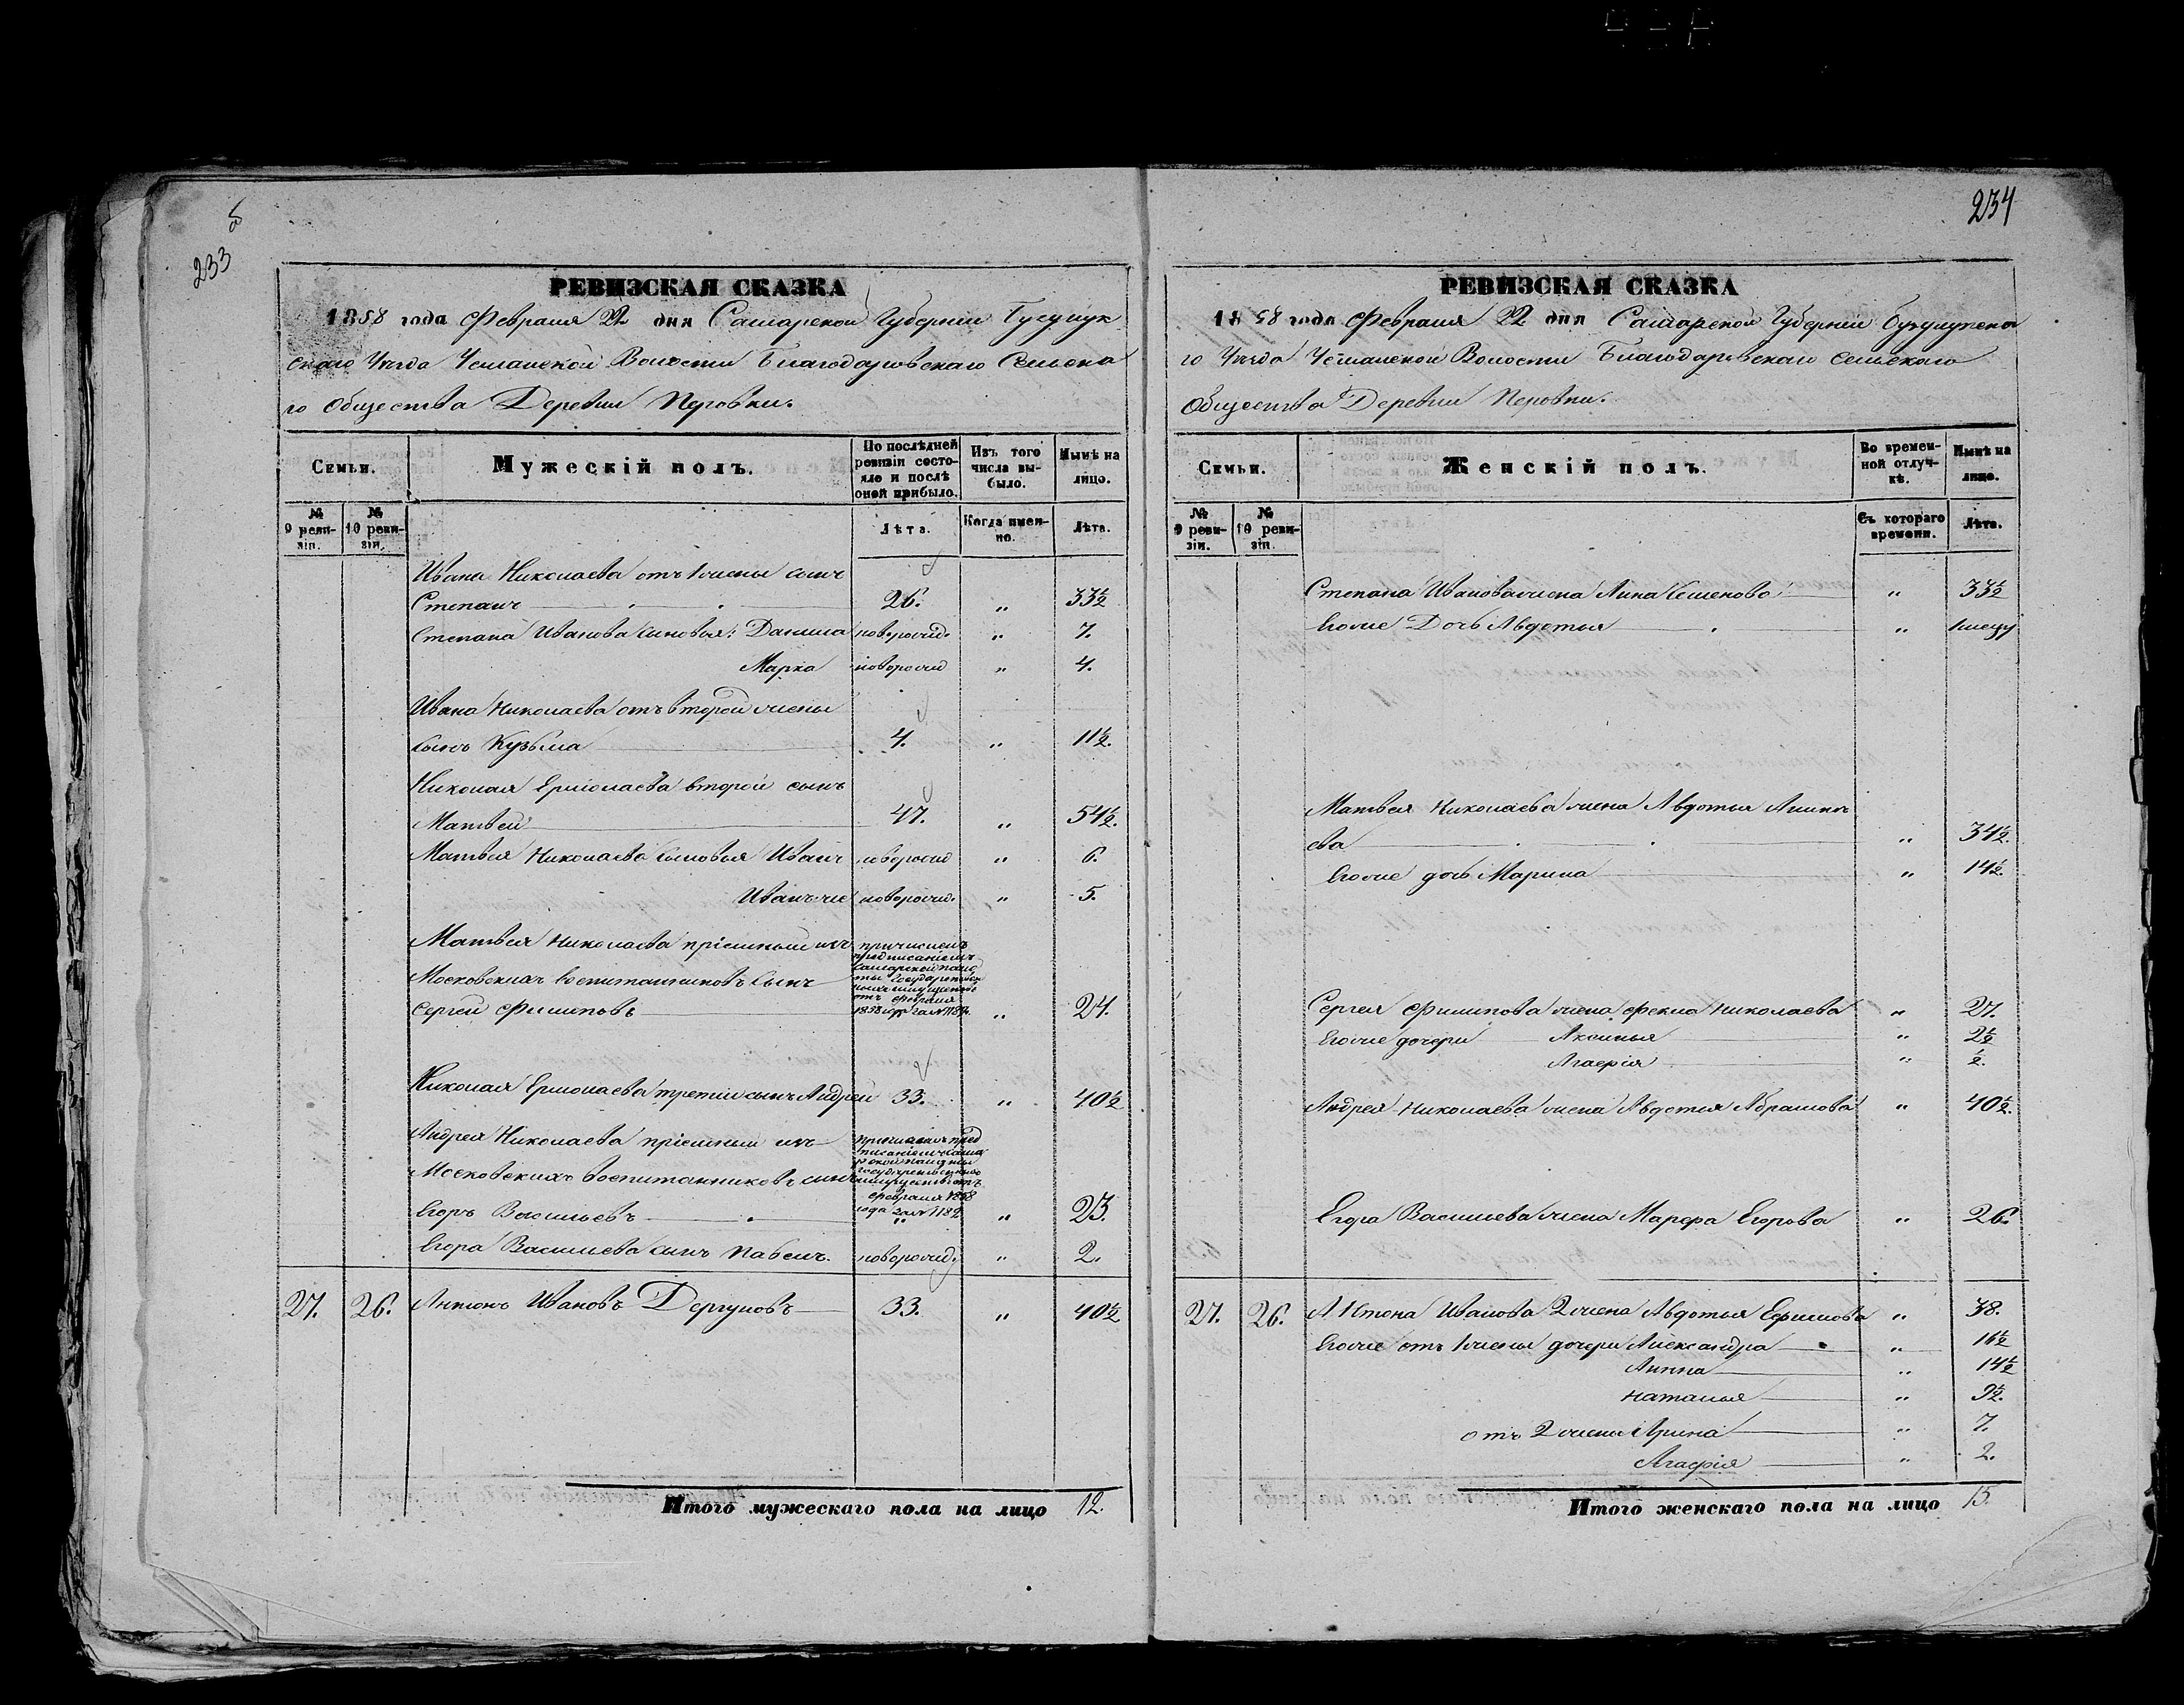 233
РЕВИЗСКАЯ СКАЗКА
1858 года Февраля 22 дня Самарской Губерніи Бузулук
скаго Уезда Волости Благодаровскаго Сельска
го Общества Деревни Перовки.
Семьи.
Мужескій полъ.
По послѣдней ревизіи состояло и послѣ оной прибыло.
Изъ того числа выбыло.
Нынѣ на лицо.
№ 9 ревизіи.
№ 10 ревизіи.
Лѣта.
Когда именно.
Лѣта.
Ивана Николаева отъ 1 жены сынъ
Степанъ 26. „ 33½
Степана Иванова сыновья: Данила новорожд. „ 7.
Марка новорожд „ 4.
Ивана Николаева отъ второй жены
сынъ Кузьма 4. „ 11½.
Николая Ермолаева второй сынъ
Матвей 47. „ 54½.
Матвея Николаева сыновья Иванъ новорожд „ 6.
Иванъ же новорожд. „ 5.
Матвея Николаева пріемный изъ
Московскихъ воспитанниковъ сынъ
Сергей Филиповъ
причисленъ
предписаніемъ
Самарской пала
ты Государствен
ныхъ имуществъ
отъ Февраля
1858 года за №
„ 24.
Николая Ермолаева третий сынъ Андрей 33. „ 40½
Андрея Николаева пріемный изъ
Московскихъ воспитанниковъ сынъ
Егоръ Васильевъ
причисленъ пред
писаніемъ Сама
рской палаты
государственныхъ
имуществъ отъ
Февраля 1858
года за № 1182
„ 23.
Егора Васильева сынъ Павелъ. новорожд. „ 2.
27. 26. Антонъ Ивановъ Дергуновъ 33. „ 40½
Итого мужескаго пола на лицо 12.
234
РЕВИЗСКАЯ СКАЗКА
1858 года Февраля 22 дня Самарской Губерніи Бузулукска
го Уезда Волости Благодаровскаго Сельскаго
Общества Деревни Перовки.
Семьи.
Женскій полъ.
Во временной отлучкѣ.
Нынѣ на лицо.
№ 9 ревизіи.
№ 10 ревизіи.
Съ котораго времени.
Лѣта.
Степана Иванова жена Анна Семенова „ 33½
Егоже Дочь Авдотья „
Матвея Николаева жена Авдотья
ева „ 34½.
Егоже дочь Марина „ 14½.
Сергея Филипова жена Фекла Николаева „ 27.
Егоже дочери Аксинья „ 2½
Агафія „ ½.
Андрея Николаева жена Авдотья Абрамова „ 40½.
Егора Васильева жена Марфа Егорова „ 26.
27. 26. Антона Иванова 2 жена Авдотья Ефимова „ 38.
Егоже отъ 1 жены дочери Александра „ 16½
Анна „ 14½
Наталья „ 9½.
отъ 2 жены Арина „ 7.
Агафія „ 2.
Итого женскаго пола на лицо 15.